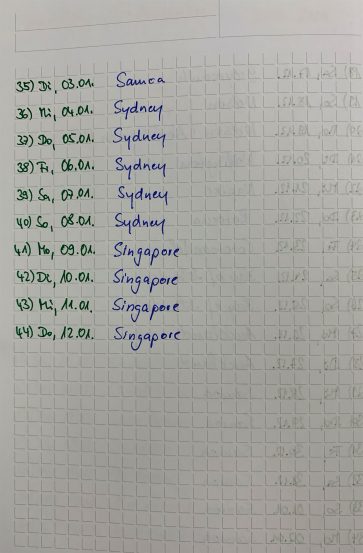 35) Di, 03.01. Samoa
36) Mi, 04.01. Sydney
37) Do, 05.01. Sydney
38) Fr, 06.01. Sydney
39) Sa, 07.01. Sydney
40) So, 08.01. Sydney
41) Mo, 09.01. Singapore
42) Di, 10.01. Singapore
43) Mi, 11.01. Singapore
44) Do, 12.01. Singapore